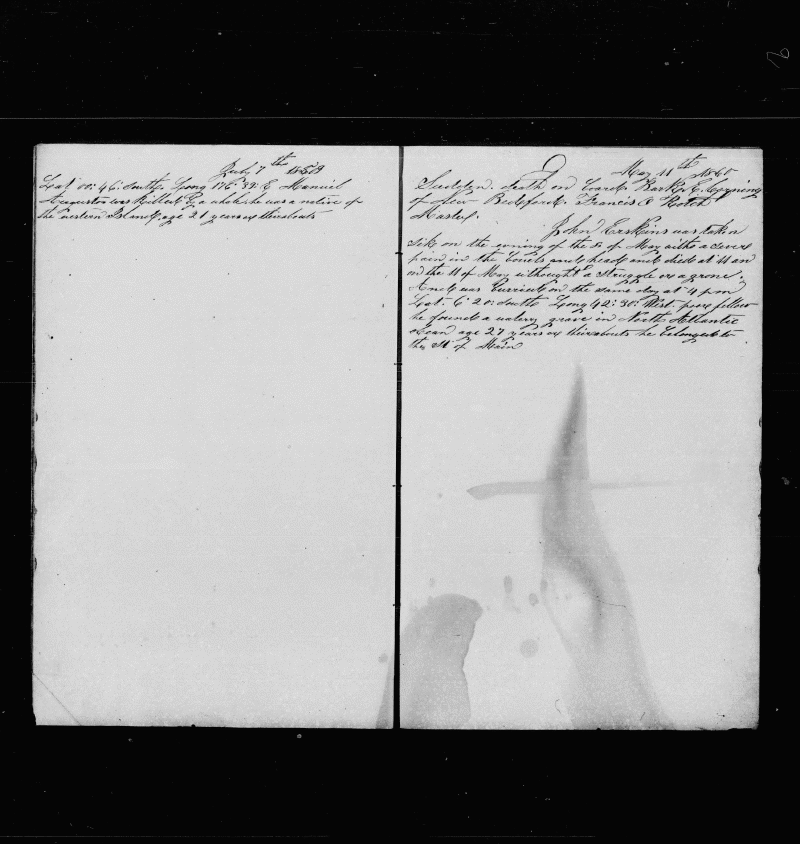 July 7th 1859
Lat 00: 46: South. Long 176: 39: E Manuel
Augustos was killed by a whale he was a native of
the western Islands, age 21 years or thireabouts
May 11th 1860
Sudden death on board Bark E. Corning
of New Bedford. Francis C Rotch
Master.
John Erskins was taken
sik on the evning of the 8 of May with a severe
pain in the bouels and head and died at 11 am
on the 11 of May without a struggle or a grone.
And was burried on the same day at 4 pm
Lat. 6: 20: South Long 42: 30: West poor fellow
he found a watery grave in North Atlantic
ocean age 27 years or thireabouts he belonged to
the St of Main